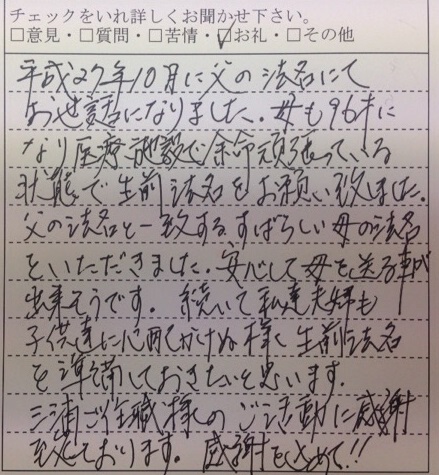 チェックをいれ詳しくお聞かせ下さい。
□意見・□質問・□苦情・☑お礼・□その他
平成27年10月に父の法名にて
お世話になりました。母も96才に
なり医療施設で余命頑張っている
状態で生前法名をお願い致しました。
父の法名と一致するすばらしい母の法名
をいただきました。安心して母を送る事が
出来そうです。続いて私達夫婦も
子供達に心配かけぬ様に生前法名
を準備しておきたいと思います。
三浦ご住職様のご活動に感謝
致しております。感謝をこめて!!